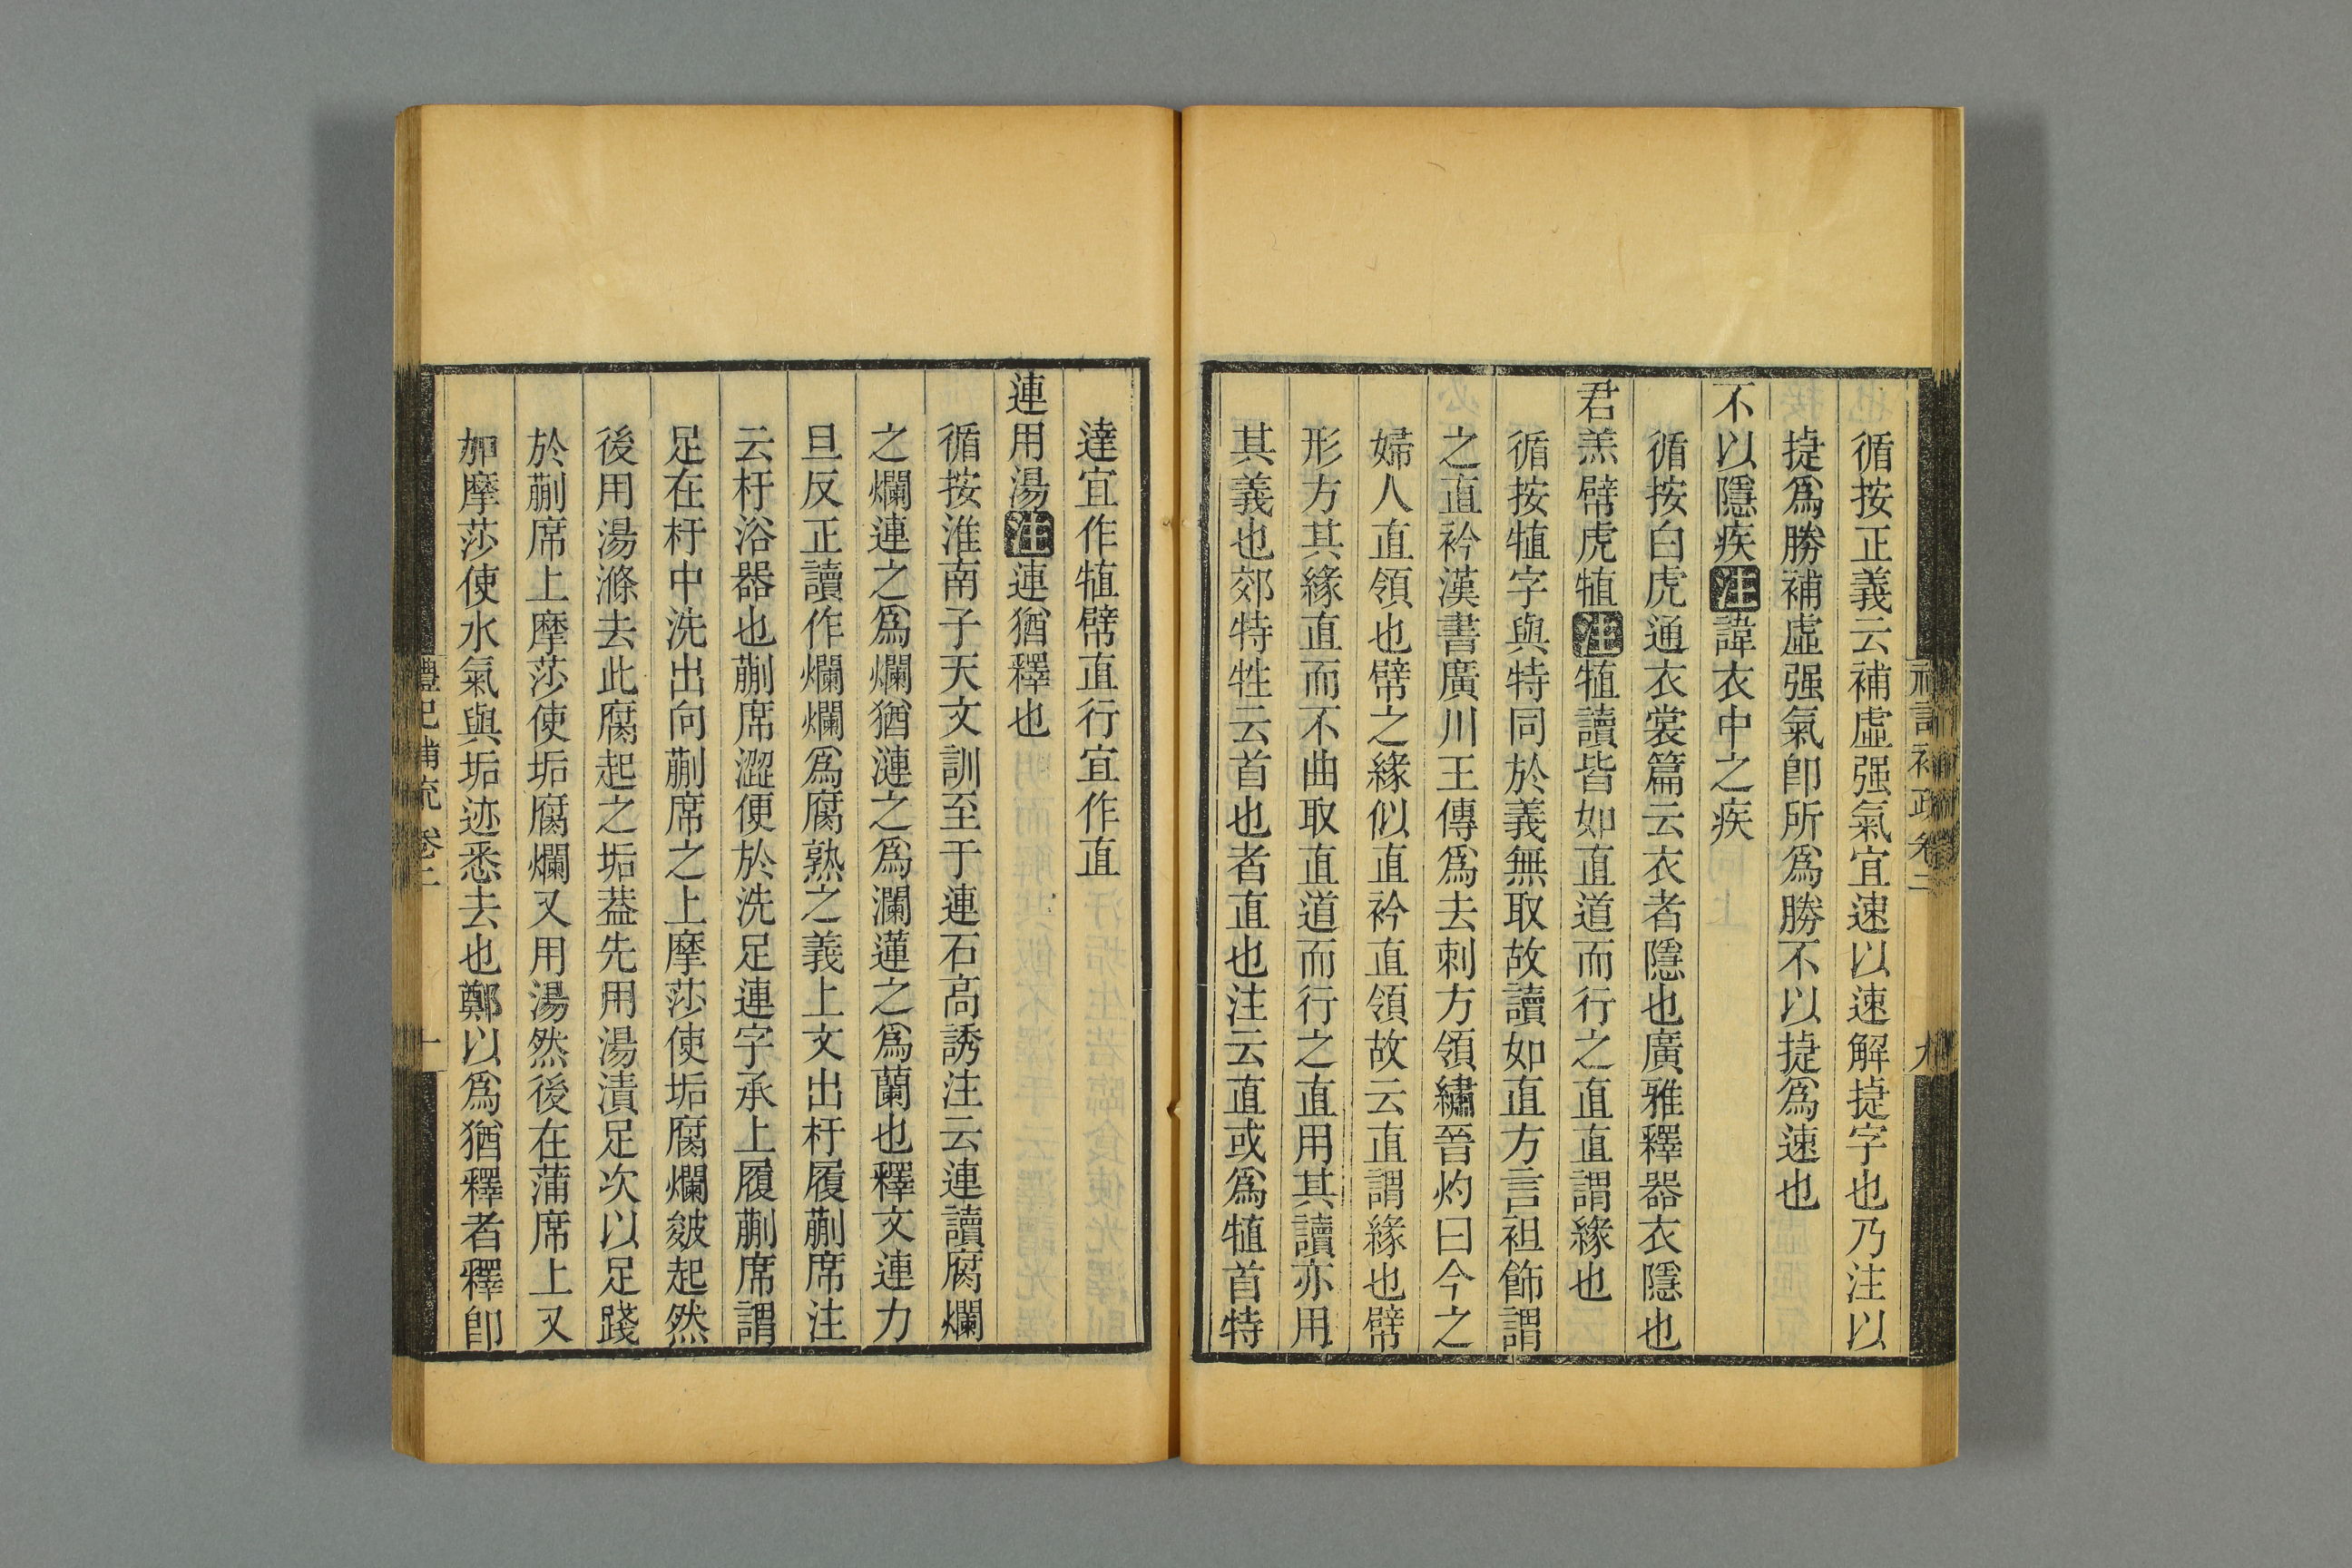 循按正義云補虛强氣宜速以速解捷字也乃注以
捷爲勝補虛强氣卽所爲勝不以捷爲速也
不以隱疾注諱衣中之疾
循按白虎通衣裳篇云衣者隱也廣雅釋器衣隱也
君羔幦虎犆注犆讀皆如直道而行之直直謂緣也
循按犆字與特同於義無取故讀如直方言袒飾謂
之直衿漢書廣川王傳爲去刺方領繡晉灼曰今之
婦人直領也幦之緣似直衿直領故云直謂緣也幦
形方其緣直而不曲取直道而行之直用其讀亦用
其義也郊特牲云首也者直也注云直或爲犆首特
達宜作犆幦直行宜作直
連用湯注連猶釋也
循按淮南子天文訓至于連石高誘注云連讀腐爛
之爛連之爲爛猶漣之爲瀾蓮之爲蘭也釋文連力
旦反正讀作爛爛爲腐熟之義上文出杅履蒯席注
云杅浴器也蒯席澀便於洗足連字承上履蒯席謂
足在杅中洗出向蒯席之上摩莎使垢腐爛皴起然
後用湯滌去此腐起之垢葢先用湯漬足次以足踐
於蒯席上摩莎使垢腐爛又用湯然後在蒲席上又
加摩莎使水氣與垢迹悉去也鄭以爲猶釋者釋卽
禮記補疏 卷二